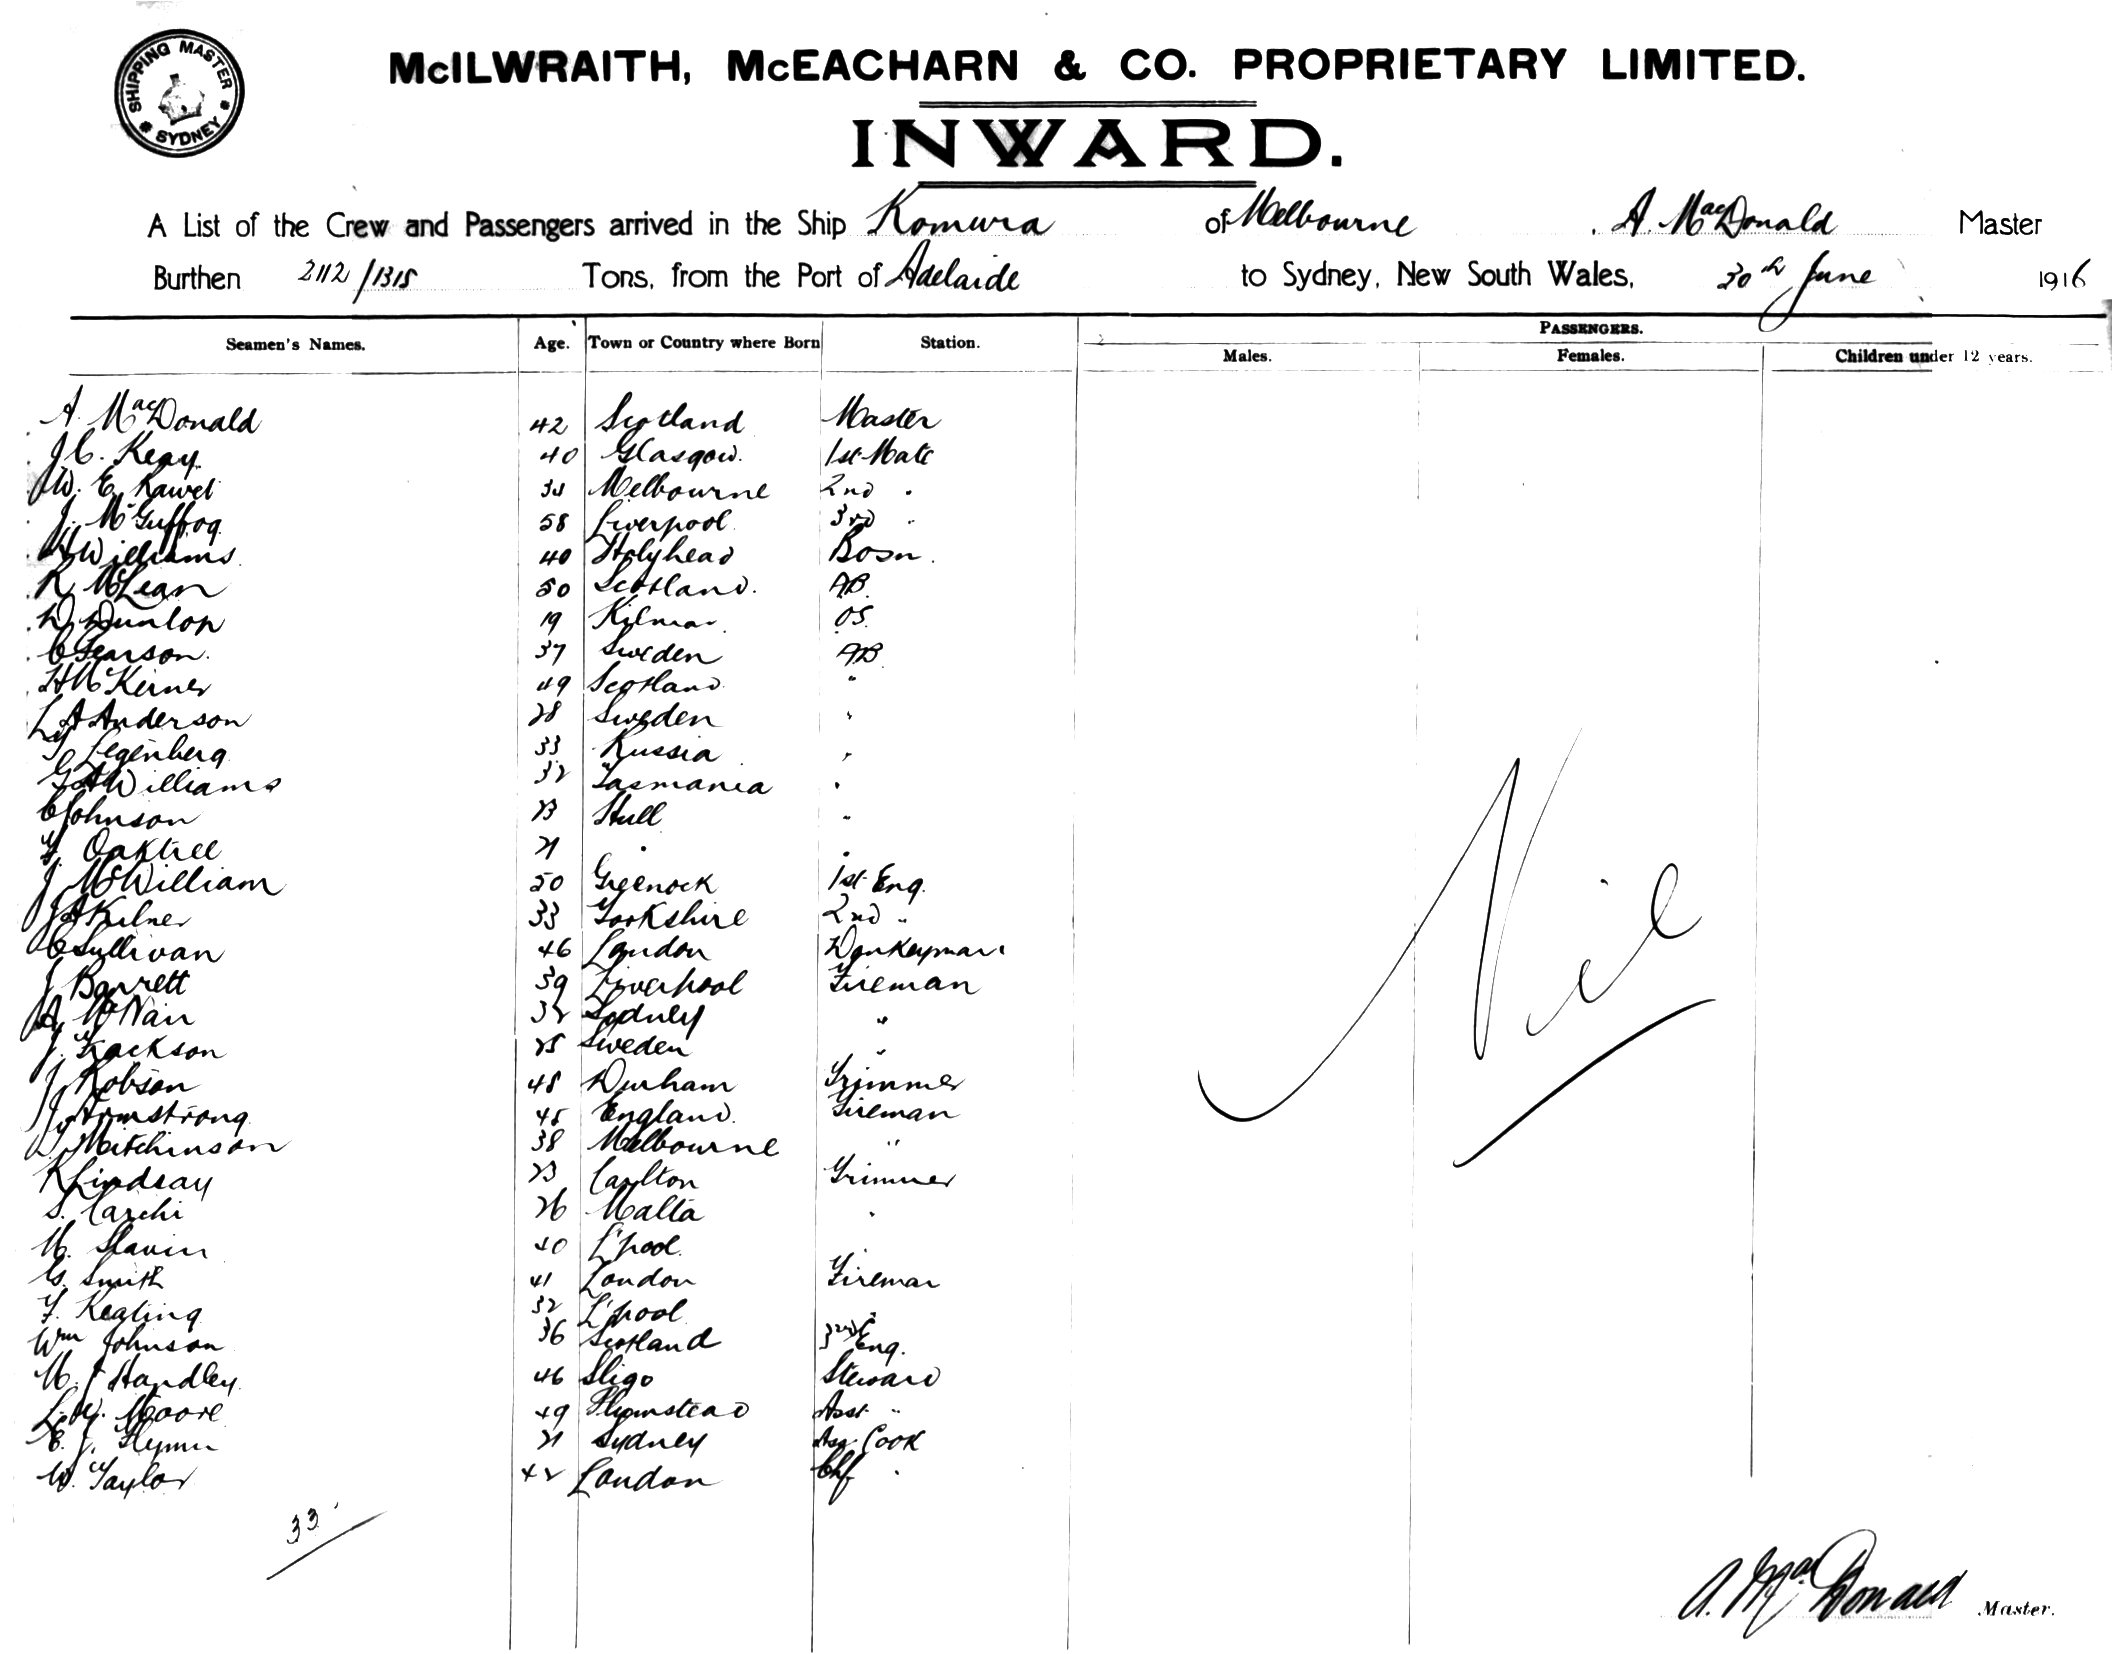 SHIPPING MASTER
SYDNEY
McILWRAITH, McEACHARN & CO. PROPRIETARY LIMITED.
INWARD.
A List of the Crew and Passengers arrived in the Ship Komura of Melbourne A. MacDonald Master
Burthen 2112/1315 Tons, from the Port of Adelaide to Sydney, New South Wales, 30th June 1916
PASSENGERS.
Seamen's Names. Age. Town or Country where Born Station. Males. Females. Children under 12 years.
A. MacDonald 42 Scotland Master
J C. Keay 40 Glasgow. 1st Mate
W. E. Melbourne 2nd "
J. McGuffog 58 Liverpool 3rd "
Williams 40 Holyhead Bosn.
R McLean 50 Scotland. AB.
D Dunlop 19 OS.
C Pearson. 37 Sweden AB
H 49 Scotland "
L A Anderson 28 Sweden "
Legenberg 33 Russia "
G A Williams 32 Tasmania "
C Johnson 23 Hull "
F. Oaktree 21 " "
J McWilliam 50 Greenock 1st Eng.
J A Kilner 33 Yorkshire 2nd "
C Sullivan 46 London Donkeyman
J Barrett 39 Liverpool Fireman
A McNair 32 Sydney "
J. Jackson 25 Sweden "
J Robson 48 Durham Trimmer
J Armstrong 45 England. Fireman
Mitchinson 38 Melbourne "
K Lindsay 23 Carlton Trimmer
S. Carchi 26 Malta "
M. Slavin 40 L'pool.
G. Smith 41 London Fireman
F. Keating 32 L'pool
Wm Johnson 36 Scotland 3rd Eng.
M. J Handley. 46 Sligo Steward
Moore 49 Plumstead Asst "
E. J. Flynn 21 Sydney Cook
W. Taylor 42 London Chf "
Nil
33
A. MacDonald Master.